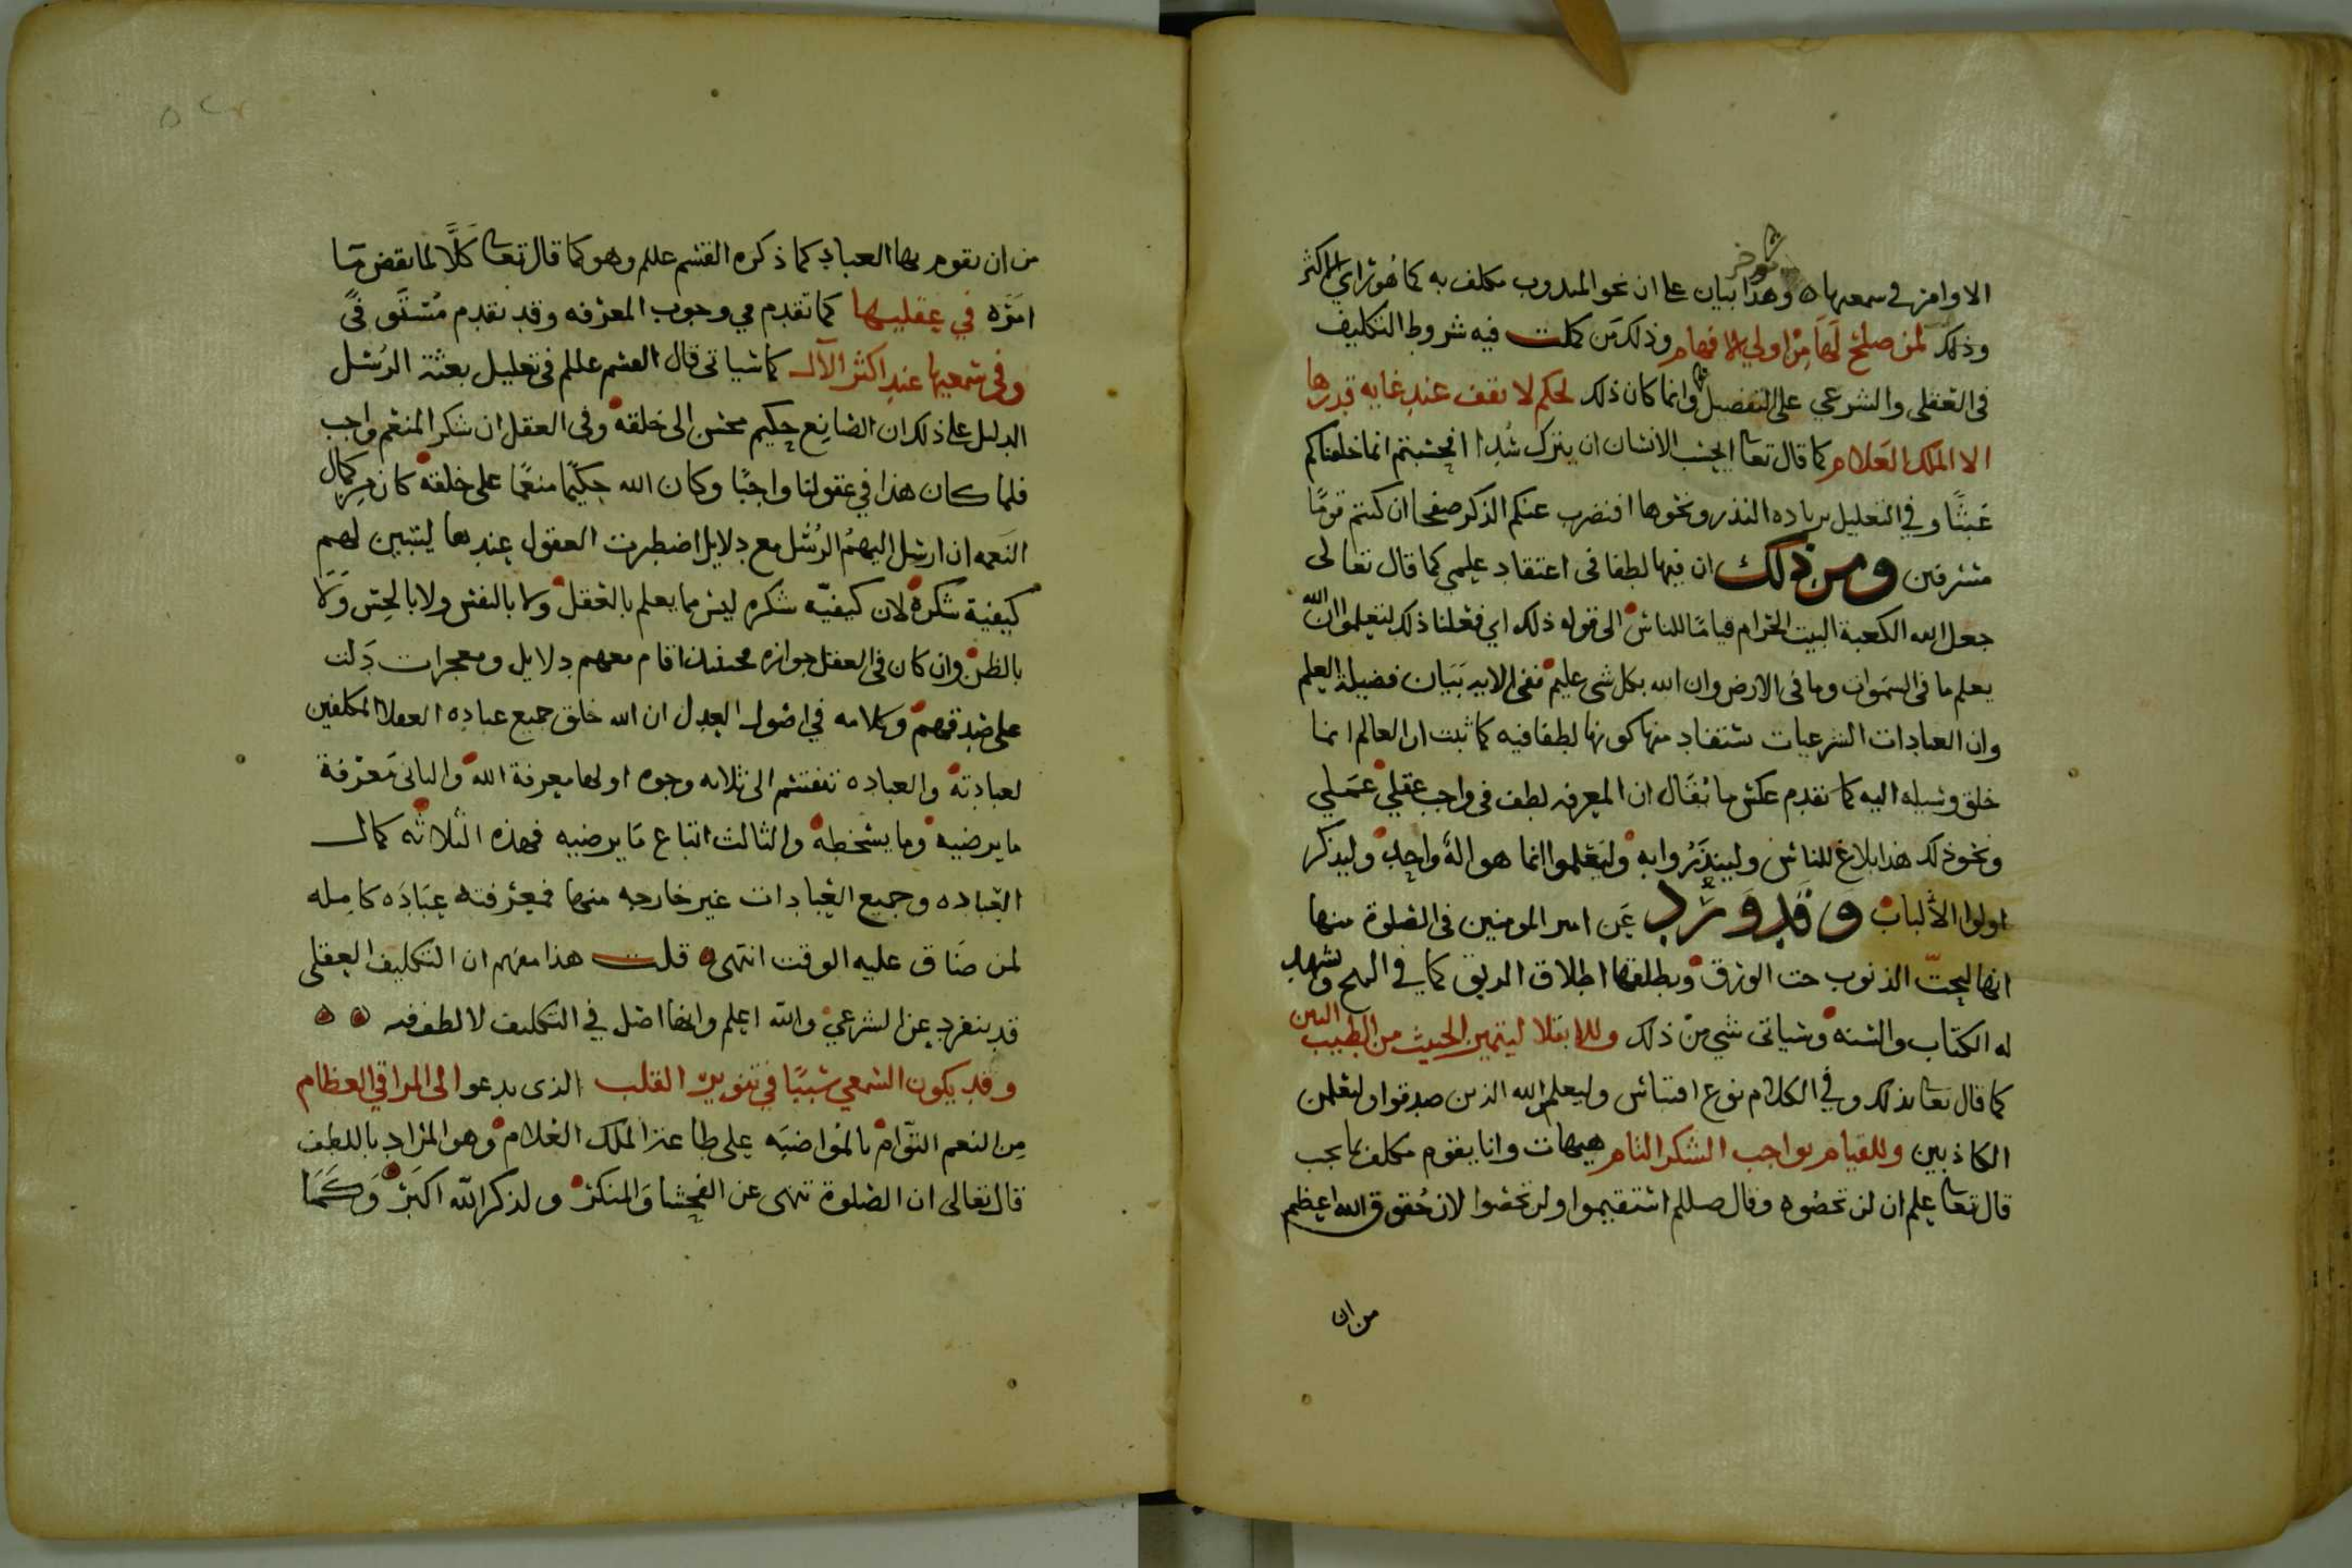 الاوامر في سمعيها ه وهذا بيان على ان نحو المندوب مكلف به كما هو راي الاكثر
وذلك لمن صلح لها من اولي الافهام وذلك من كملت فيه شروط التكليف
في العقلي والشرعي على التفصيل وانما كان ذلك لحكم لا تقف عند غايه قدرها
الا الملك العلام كما قال تعا ايحسب الانسان ان يترك سدا افحسبتم انما خلقناكم
عبثا وفي التعليل بزياده النذر ونحوها افنضرب عنكم الذكر صفحا ان كنتم قوما
مسرفين ومن ذلك ان فيها لطفا في اعتقاد علمي كما قال تعالى
جعل الله الكعبة البيت الحرام قياما للناس الى قوله ذلك اي فعلنا ذلك لتعلموا ان الله
يعلم ما في السموات وما في الارض وان الله بكل شي عليم ففي الايه بيان فضيلة العلم
وان العبادات الشرعيات ستفاد منها كونها لطفا فيه كما ثبت ان العالم انما
خلق وسيله اليه كما تقدم عكس ما يقال ان المعرفه لطف في واجب عقلي عملي
ونحو ذلك هذا بلاغ للناس ولينذروا به وليعلموا انما هو اله واحد وليذكر
اولوا الألباب وقد ورد عن امير المومنين في الصلوة منها
انها لتحت الذنوب حت الورق وتطلقها اطلاق الربق كما في النهج وشهد
له الكتاب والسنه وسياتي شي من ذلك وللابتلا ليتميز الخبيث من الطيب البين
كما قال تعا بذلك وفي الكلام نوع اقتباس وليعلمن الله الذين صدقوا وليعلمن
الكاذبين وللقيام بواجب الشكر التام هيهات وانا يقوم مكلف بما يجب
قال تعا علم ان لن تحصوه وقال صللم استقيموا ولن تحصوا لان حقوق الله اعظم
من ان
من ان يقوم بها العباد كما ذكره القسم عللم وهو كما قال تعا كلا لما يقض ما
امره في عقليها كما تقدم في وجوب المعرفه وقد تقدم مستوفى
وفي سمعيها عند اكثر الآل كما سياتي قال القسم عللم في تعليل بعثة الرسل
الدليل على ذلك ان الصانع حكيم محسن الى خلقه وفي العقل ان شكر المنعم واجب
فلما كان هذا في عقولنا واجبا وكان الله حكيما منعما على خلقه كان من كمال
النعمه ان ارسل اليهم الرسل مع دلايل اضطرت العقول عندها ليتبين لهم
كيفية شكره لان كيفيه شكره ليس مما يعلم بالعقل ولا بالنفس ولا بالحس ولا
بالظن وان كان في العقل جوازه اقام معهم دلايل ومعجزات دلت
على صدقهم وكلامه في اصول العدل ان الله خلق جميع عباده العقلا المكلفين
لعبادته والعباده تنقسم الى ثلاثه وجوه اولها معرفة الله والثاني معرفة
ما يرضيه وما يسخطه والثالث اتباع ما يرضيه فهذه الثلاثه كمال
العباده وجميع العبادات غير خارجه منها فمعرفته عباده كامله
لمن ضاق عليه الوقت انتهى ه قلت هذا منهم ان التكليف العقلي
قد ينفرد عن الشرعي والله اعلم وانها اصل في التكليف لا لطف فيه ه ه
وقد يكون السمعي سببا في تنوير القلب الذى يدعوا الى المراقي العظام
من النعم التوام بالمواضبه على طاعة الملك العلام وهو المراد باللطف
قال تعالى ان الصلوة تنهى عن الفحشا والمنكر ولذكر الله اكبر وكما